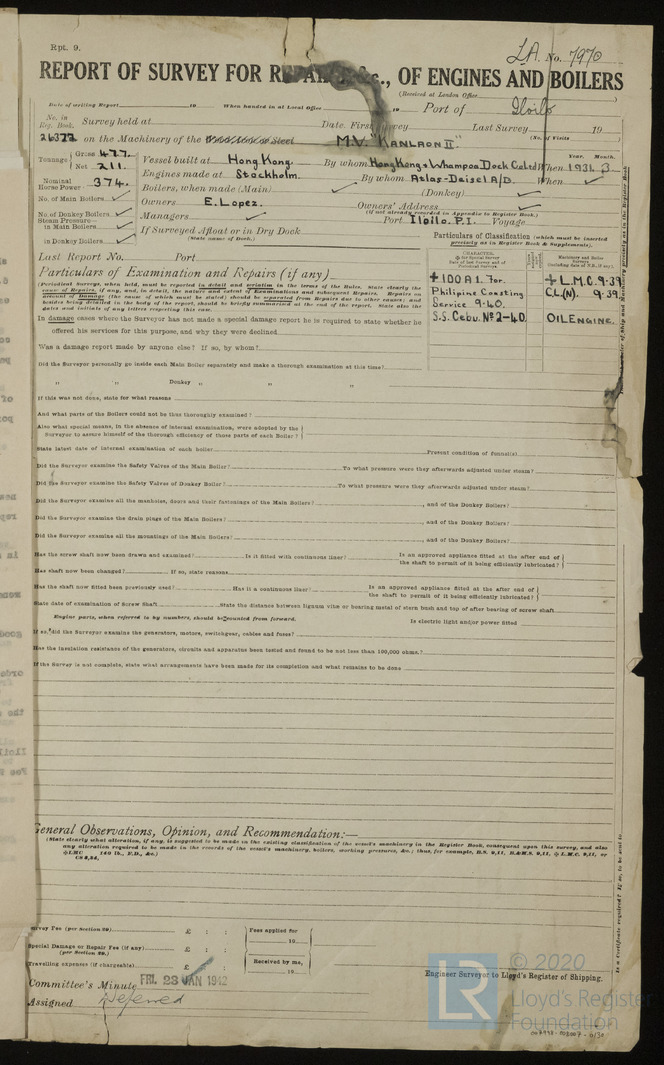 Rpt. 9.
No. 7970
REPORT OF SURVEY FOR REPAIRS, &c., OF ENGINES AND BOILERS
(Received at London Office
Date of writing Report 19 When handed in at Local Office 19 Port of Iloilo
No. in Reg. Book. Survey held at Date. First Survey Last Survey 19
(No. of Visits
26372 on the Machinery of the Steel M.V. "KANLAON II".
Tonnage Gross 477. Net 211.
Vessel built at Hong Kong. By whom Hong Kong & Whampoa Dock Co Ltd When Year. 1931 Month. 3
Nominal Horse Power 374.
Engines made at Stockholm. By whom Atlas-Deisel A/B. When ✓
No. of Main Boilers ✓ Boilers, when made (Main) ✓ (Donkey) ✓
No. of Donkey Boilers ✓ Owners E. Lopez. Owners' Address ✓
(If not already recorded in Appendix to Register Book.)
Steam Pressure— in Main Boilers ✓ Managers ✓ Port Iloilo. P.I. Voyage
in Donkey Boilers ✓ If Surveyed Afloat or in Dry Dock
(State name of Dock.)
Particulars of Classification (which must be inserted precisely as in Register Book & Supplements).
Last Report No. Port
Particulars of Examination and Repairs (if any)
(Periodical Surveys, when held, must be reported in detail and seriatim in the terms of the Rules. State clearly the
cause of Repairs, if any, and, in detail, the nature and extent of Examinations and subsequent Repairs. Repairs on
account of Damage (the cause of which must be stated) should be separated from Repairs due to other causes; and
besides being detailed in the body of the report, should be briefly summarised at the end of the report. State also the
dates and initials of any letters respecting this case.
+ 100 A1. For.
Philipine Coasting
Service 9-40.
S.S. Cebu. No 2-40.
+ L.M.C. 9-39
C.L.(N). 9.39
OIL ENGINE.
In damage cases where the Surveyor has not made a special damage report he is required to state whether he
offered his services for this purpose, and why they were declined
Was a damage report made by anyone else? If so, by whom?
Did the Surveyor personally go inside each Main Boiler separately and make a thorough examination at this time?
" " Donkey " " "
If this was not done, state for what reasons
And what parts of the Boilers could not be thus thoroughly examined?
Also what special means, in the absence of internal examination, were adopted by the
Surveyor to assure himself of the thorough efficiency of those parts of each Boiler?
State latest date of internal examination of each boiler Present condition of funnel(s)
Did the Surveyor examine the Safety Valves of the Main Boiler? To what pressure were they afterwards adjusted under steam?
Did the Surveyor examine the Safety Valves of Donkey Boiler? To what pressure were they afterwards adjusted under steam?
Did the Surveyor examine all the manholes, doors and their fastenings of the Main Boilers? , and of the Donkey Boilers?
Did the Surveyor examine the drain plugs of the Main Boilers? , and of the Donkey Boilers?
Did the Surveyor examine all the mountings of the Main Boilers? , and of the Donkey Boilers?
Has the screw shaft now been drawn and examined? Is it fitted with continuous liner? Is an approved appliance fitted at the after end of
the shaft to permit of it being efficiently lubricated?
Has shaft now been changed? If so, state reasons
Has the shaft now fitted been previously used? Has it a continuous liner? Is an approved appliance fitted at the after end of
the shaft to permit of it being efficiently lubricated?
State date of examination of Screw Shaft State the distance between lignum vitæ or bearing metal of stern bush and top of after bearing of screw shaft
Engine parts, when referred to by numbers, should be counted from forward. Is electric light and/or power fitted
If so, did the Surveyor examine the generators, motors, switchgear, cables and fuses?
Has the insulation resistance of the generators, circuits and apparatus been tested and found to be not less than 100,000 ohms?
If the Survey is not complete, state what arrangements have been made for its completion and what remains to be done
General Observations, Opinion, and Recommendation:—
(State clearly what alteration, if any, is suggested to be made in the existing classification of the vessel's machinery in the Register Book, consequent upon this survey, and also
any alteration required to be made in the records of the vessel's machinery, boilers, working pressures, &c.; thus, for example,
Survey Fee (per Section 29) £ : :
Fees applied for
19
Special Damage or Repair Fee (if any) (per Section 29.) £ : :
Received by me,
Travelling expenses (if chargeable) £ : :
19
Engineer Surveyor to Lloyd's Register of Shipping.
Committee's Minute FRI. 23 JAN 1942
Assigned Deferred
© 2020
LR Lloyd's Register
Foundation